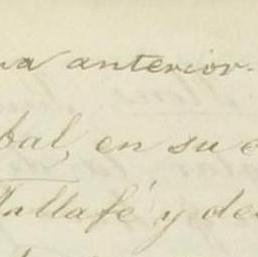 na anterior.
bal, en su e
Tallafé y de